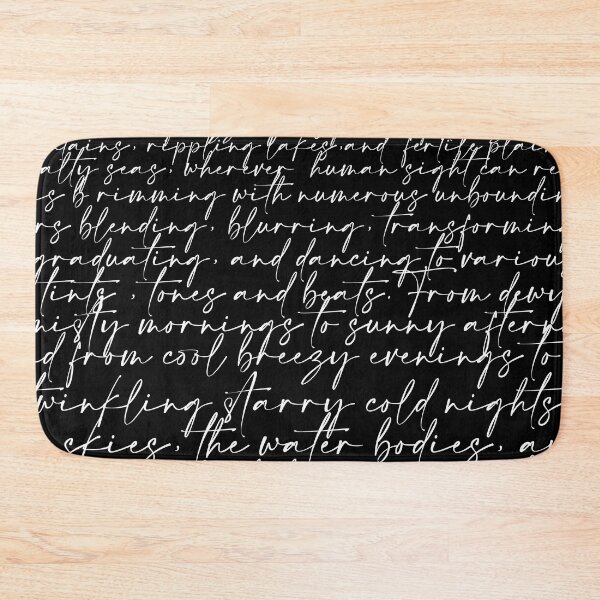 ains, rippling lakes, and fertile plac
alty seas, wherever human sight can re
s b rimming with numerous unboundin
rs blending, blurring, transforming
graduating, and dancing to various
tints , tones and beats. From dewy
misty mornings to sunny aftern
d from cool breezy evenings to
winkling starry cold nights
skies, the water bodies, a